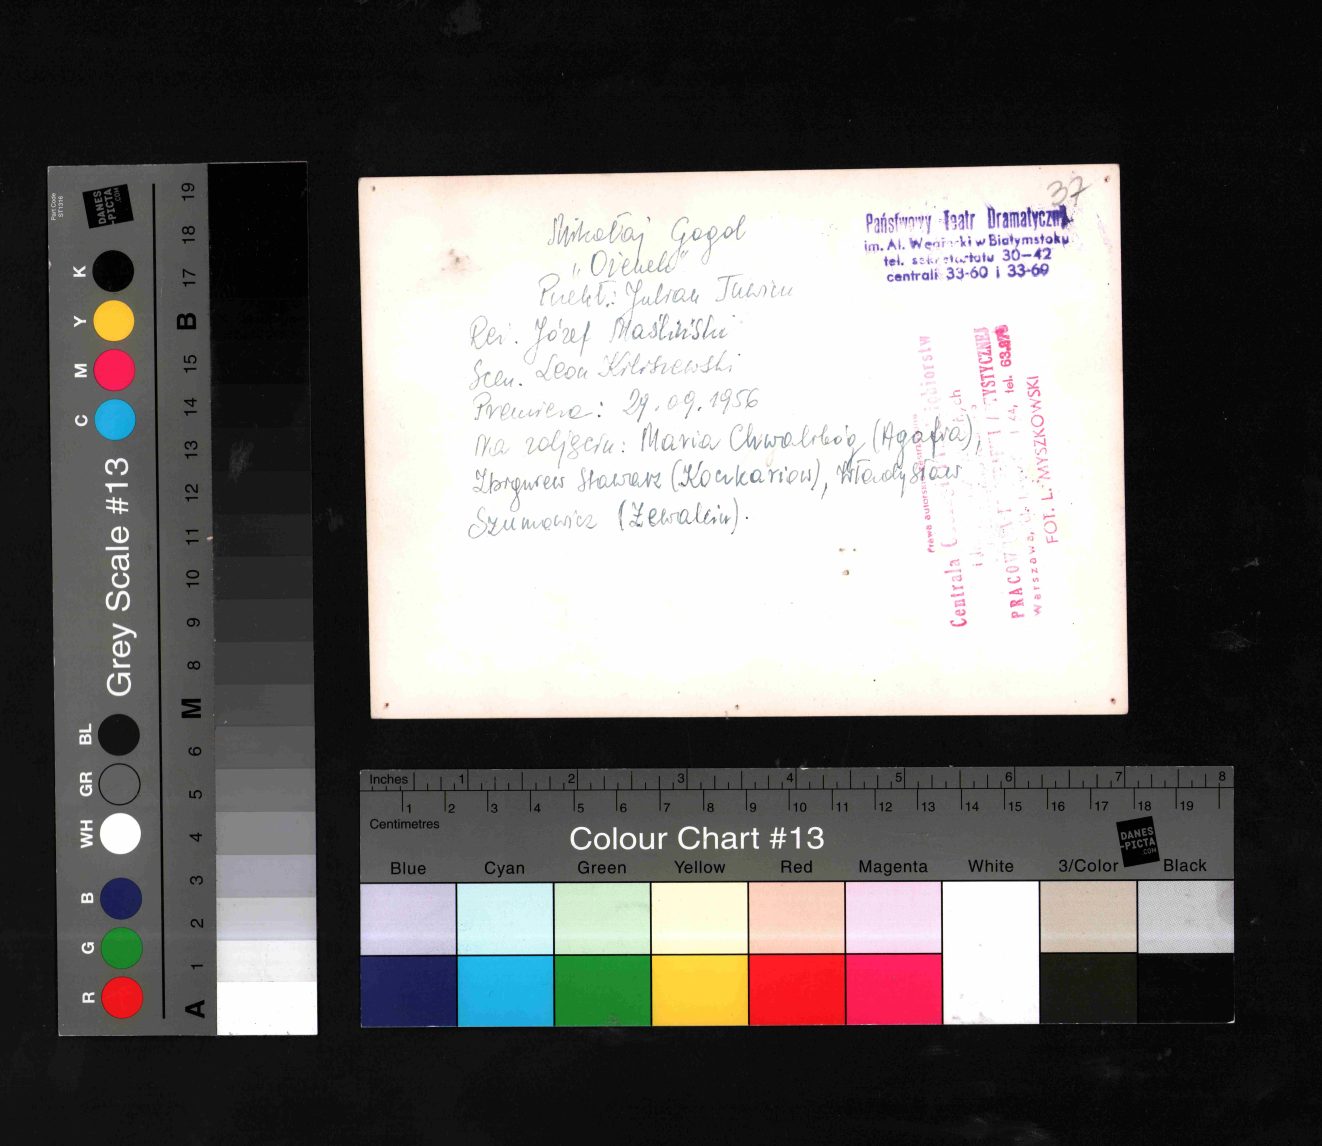 37
Mikołaj Gogol
"Ożenek"
Przekł.: Julian Tuwim
Reż. Józef Maśliński
Scen. Leon Kiliszewski
Premiera: 29.09.1956
Na zdjęciu: Maria Chwalibóg (Agafia),
Zbigniew Stawarz (Koczkariow), Władysław
Szumowicz (Żewakin).
Państwowy Teatr Dramatyczny
im. Al. Węgierki w Białymstoku
tel. sekretariatu 30-42
centrali 33-60 i 33-69
Prawa autorskie
Centrala
PRACOWNIA
Warszawa, tel. 63.275
FOT. L. MYSZKOWSKI
Part Code
ST1316
DANES
-PICTA
.COM
Grey Scale #13
K Y M C
BL GR WH B G R
A 1 2 3 4 5 6 M 8 9 10 11 12 13 14 15 B 17 18 19
Inches 1 2 3 4 5 6 7 8
1 2 3 4 5 6 7 8 9 10 11 12 13 14 15 16 17 18 19
Centimetres
Colour Chart #13
DANES
-PICTA
.COM
Blue Cyan Green Yellow Red Magenta White 3/Color Black